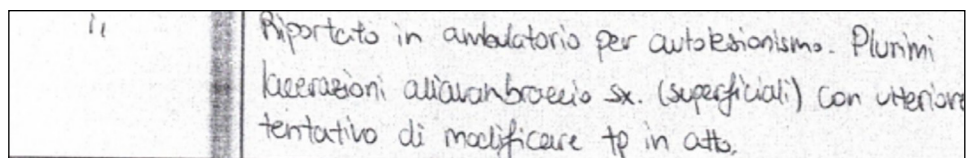 " Riportato in ambulatorio per autolesionismo. Plurimi
lacerazioni all'avanbraccio sx. (superficiali) con ulteriore
tentativo di modificare tp in atto.